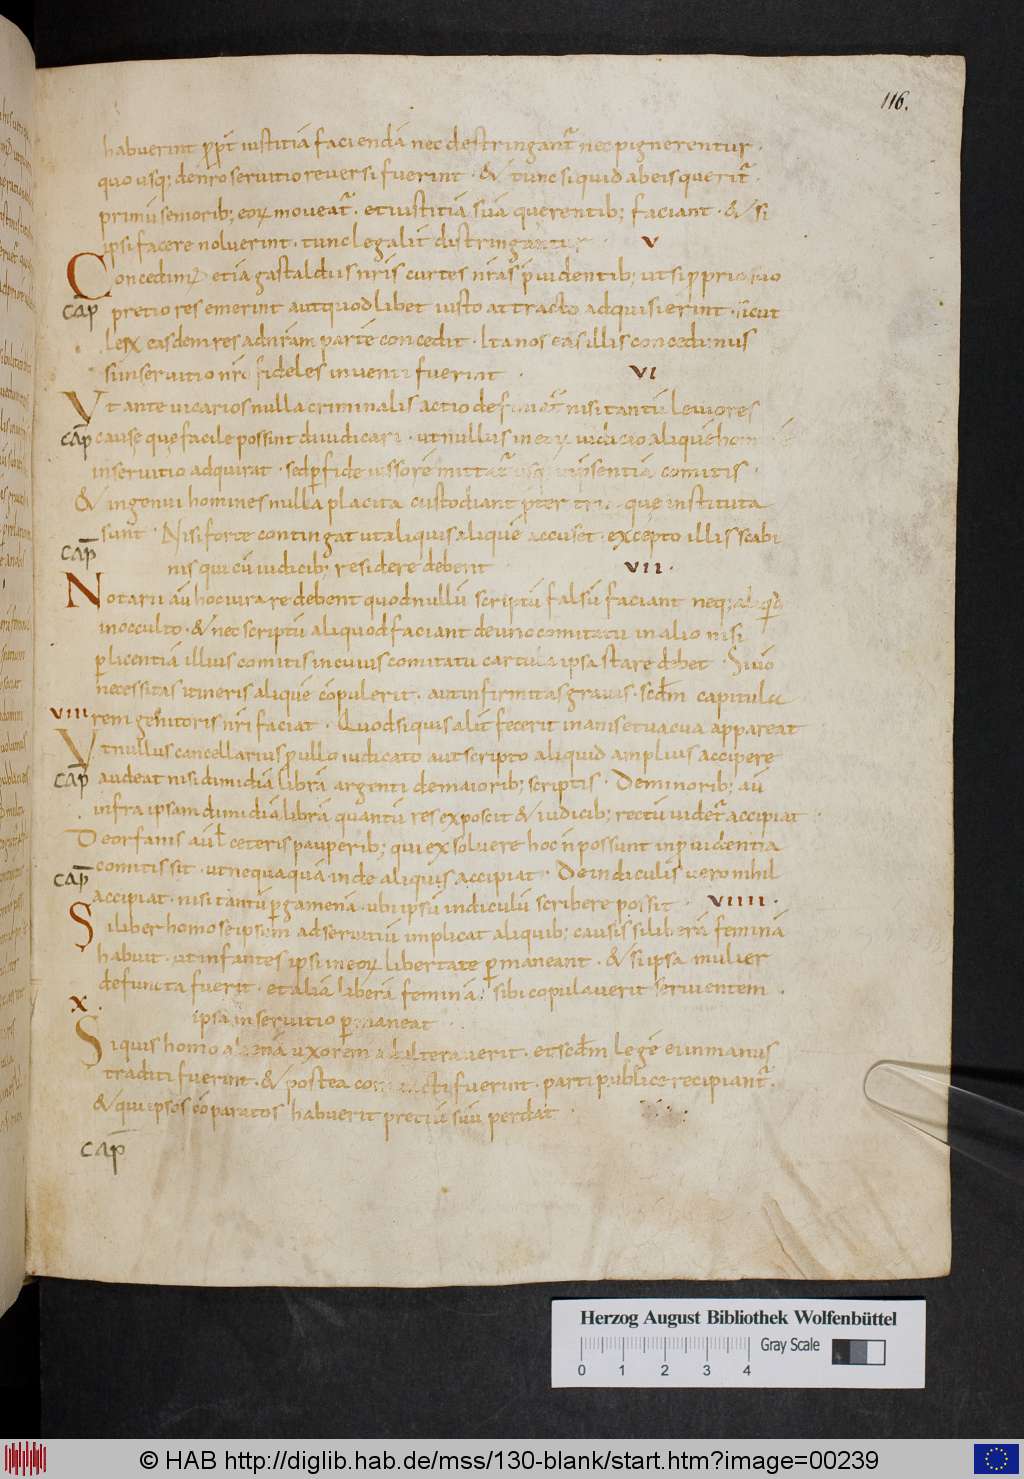 116.
habuerint ꝓpt̄ iustitiā faciendā nec destringant᷑ nec pignerentur ·
quo usq; denr̄o seruitio reuersi fuerint · & tunc siquid abeis querit᷑ ·
primū seniorib; eoꝝ moueat᷑ · et iustitiā suā querentib; faciant · & si
ipsi facere noluerint · tunc legalit̄ distringantur · V
Concedim᷒ etiā gastaldus nr̄is curtes nr̄as p̄uidentib; ut si ꝓprio suo
cap̄ pretio res emerint aut quodlibet iusto attracto adquisierint · sicut
lex easdem res adnr̄am partē concedit · Ita nos eas illis concedimus
si inseruitio nr̄o fideles inuenti fuerint · VI
Ut ante uicarios nulla criminalis actio definiat᷑ nisi tantū leuiores
cap̄ cause que facile possint diiudicari · ut nullus in eoꝝ iudicio aliquis
inseruitio adquirat · sed ꝑfide iussorē mittat᷑ usq; inp̄sentiā comitis ·
& ingenui homines nulla placita custodiant p̄ter tria · que instituta
sunt · Nisi forte contingat ut aliquis aliquē accuset · excepto illis scabi
cap̄ nis qui cū iudicib; residere debent VII ·
Notarii aū hoc iurare debent quod nullū scriptū falsū faciant neq; aliqd̄
in occulto · & nec scriptū aliquod faciant de uno comitatu in alio nisi
ꝑ licentiā illius comitis in cuius comitatu cartula ipsa stare debet · Si ūo
necessitas itineris aliquē cōpulerit · aut infirmitas grauis · scd̄m capitula
VIII rem genitoris nr̄i faciat · Quod siquis alit̄ fecerit inanis et uacua appareat
Ut nullus cancellarius ꝓ ullo iudicato aut scripto aliquid amplius accipere
cap̄ audeat nisi dimidiā librā argenti de maiorib; scriptis · De minorib; aū
infra ipsam dimidiā librā quantū res exposcit & iudicib; rectū uidet᷑ accipiat ·
De orfanis aū ł ceteris pauperib; qui exsoluere hoc n̄ possunt in ꝓuidentia
comitis sit · ut nequaquā inde aliquis accipiat · De indiculis uero nihil
cap̄ accipiat · nisi tantū ꝑgamena · ubi ipsū indiculū scribere possit · VIIII ·
Si liber homo se ipsum ad seruitiū implicat aliquib; causis si liberā feminā
habuit · ut infantes ipsi in eoꝝ libertate ꝑmaneant · & si ipsa mulier
defuncta fuerit · et aliā liberā feminā sibi copulauerit seruientem ·
X · ipsa in seruitio ꝑmaneat ·
Siquis homo alienā uxorem adulterauerit · et scd̄m legē eū in manus
traditi fuerint · & postea fuerint · parti publice recipiant᷑ ·
& qui ipsos cōparatos habuerit pretiū suū perdat ·
cap̄
Herzog August Bibliothek Wolfenbüttel
Gray Scale
0 1 2 3 4
© HAB http://diglib.hab.de/mss/130-blank/start.htm?image=00239